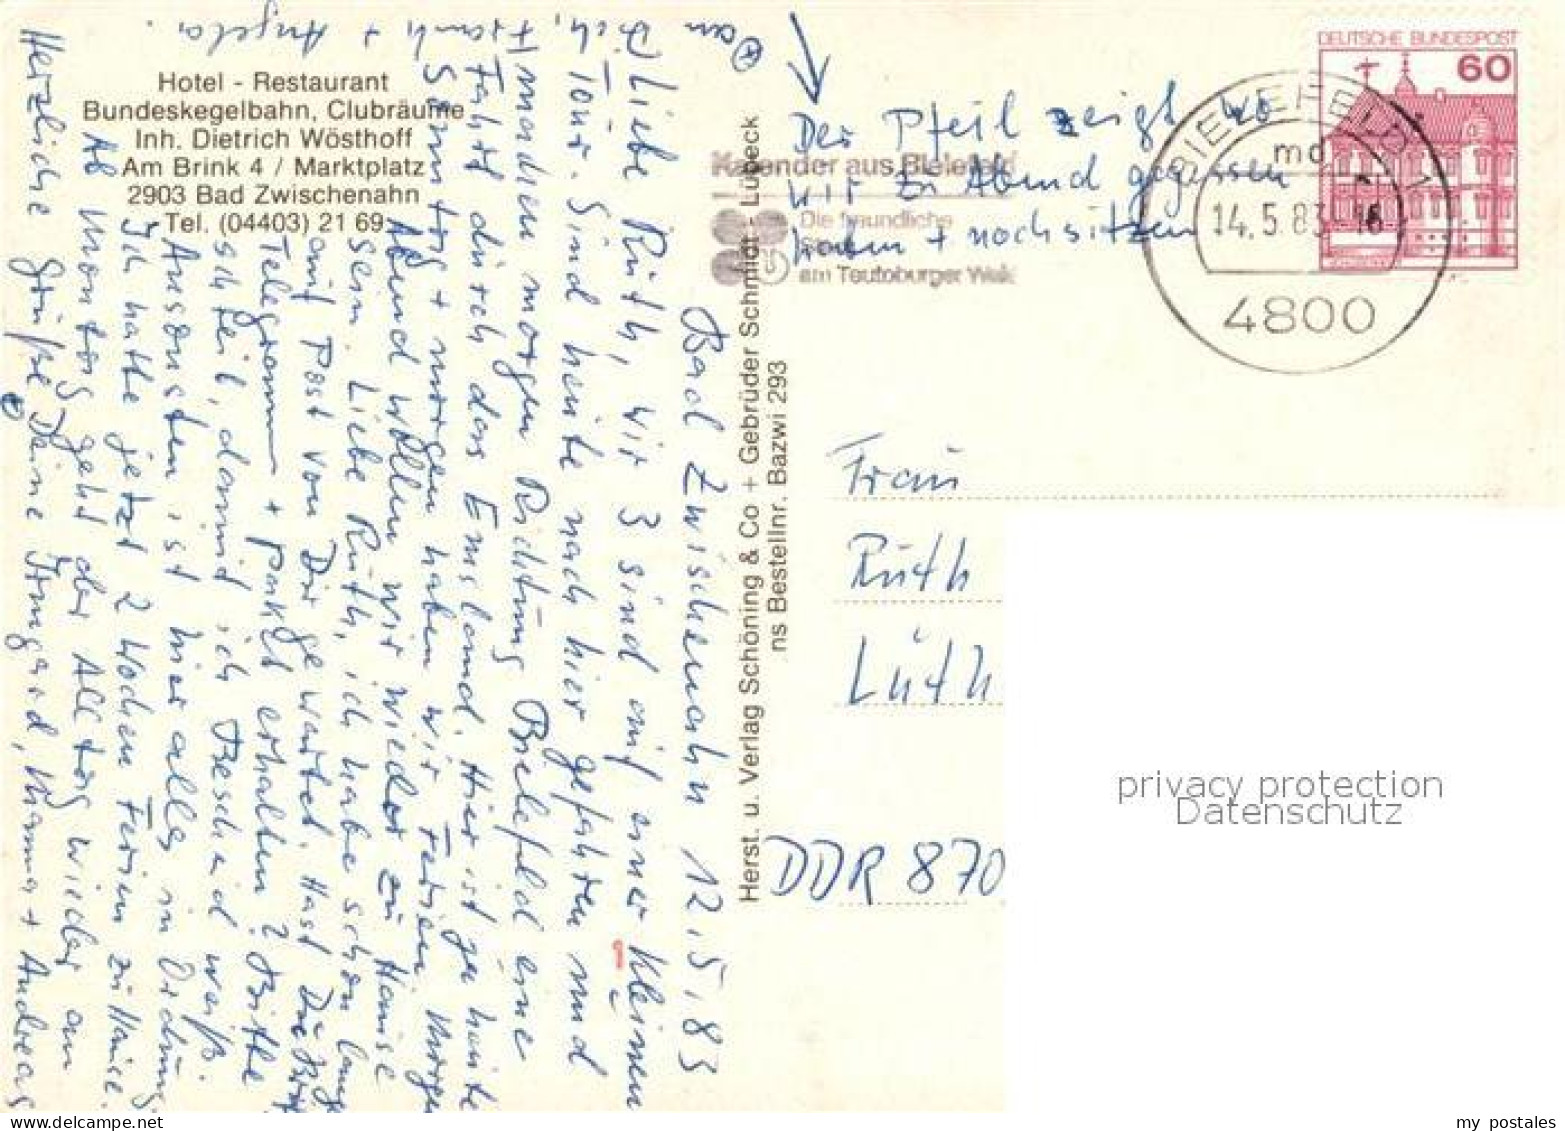 Hotel - Restaurant
Bundeskegelbahn, Clubräume
Inh. Dietrich Wösthoff
Am Brink 4 / Marktplatz
2903 Bad Zwischenahn
Tel. (04403) 21 69
Bad Zwischenahn 12.5.83
Liebe Ruth, wir 3 sind auf einer kleinen
Tour. Sind heute nach hier gefahren und
machen morgen Richtung Bielefeld eine
Fahrt durch das Emsland. Hier ist ja heute
Sonntag + morgen haben wir Ferien. Morgen
Abend wollen wir wieder zu Hause
sein. Liebe Ruth, ich habe schon lange
auf Post von Dir gewartet. Hast Du
Telegramm + Paket erhalten? Bitte
schreib, damit ich Bescheid weiß.
Ansonsten ist hier alles in Ordnung.
Ich hatte jetzt 2 Wochen Ferien zu Hause.
Ab Montag geht der Alltag wieder an
Herzliche Grüße Deine Irmgard, Mama + Andreas
an
Dich,
Frank
+
Angela.
Herst. u. Verlag Schöning & Co + Gebrüder Schmidt - Lübeck
ns Bestellnr. Bazwi 293
Der Pfeil zeigt wo
wir zu Abend gegessen
haben + noch sitzen
Kalender aus Bielefeld
Die freundliche
am Teutoburger Wald
DEUTSCHE BUNDESPOST
60
BIELEFELD 1
md
14.5.83 -16
4800
Frau
Ruth
Luth
DDR 870
privacy protection
Datenschutz
my postales